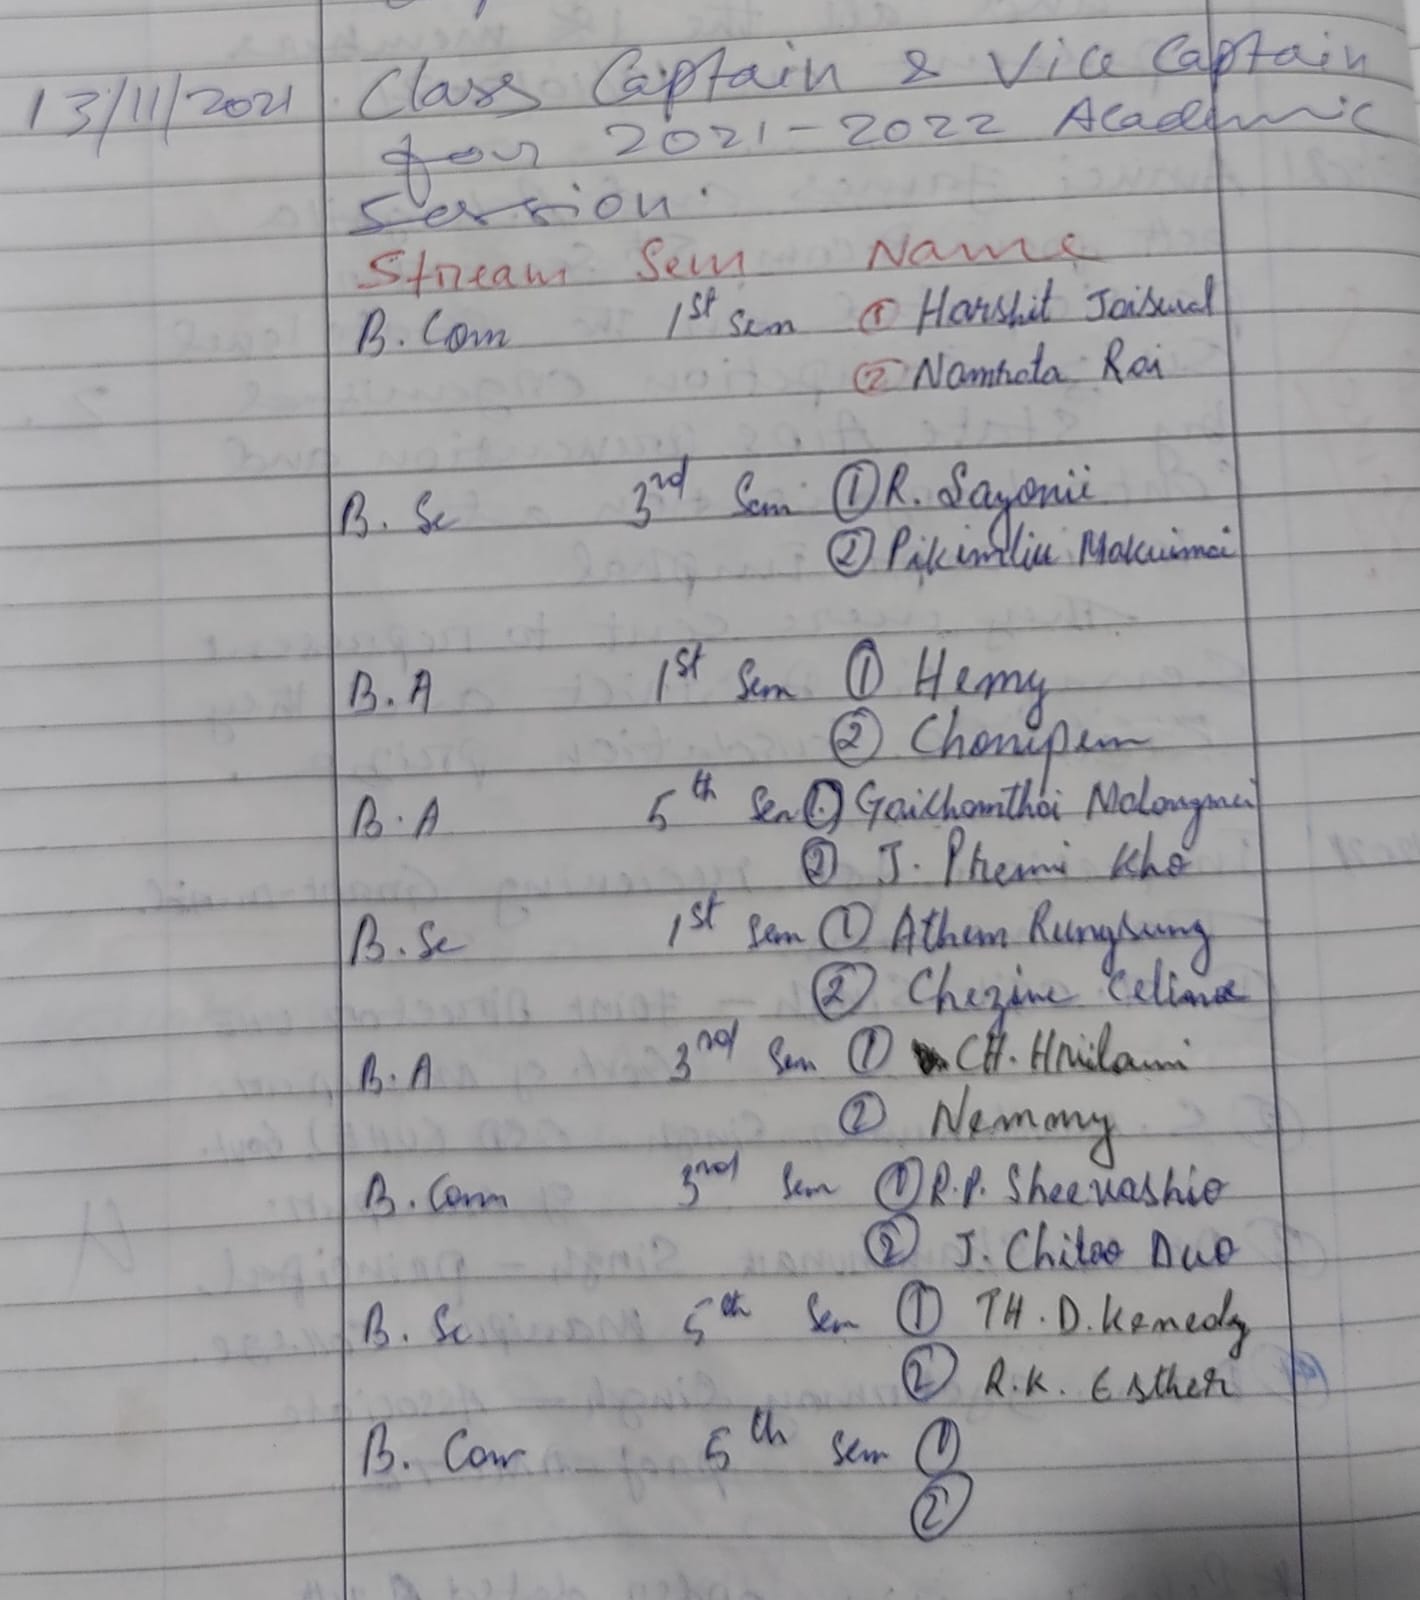 13/11/2021 Class Captain & Vice Captain
for 2021-2022 Academic
Session.
Stream Sem Name
B. Com 1st Sem ① Harshit Jaiswal
② Namrata Rai
B. Sc 3rd Sem ① R. Sayonii
② Pikimliu Makuimai
B.A 1st Sem ① Hemy
② Chonipem
B.A 5th Sem ① Gaichamthai Malangmei
② J. Phemi Kho
B.Sc 1st Sem ① Athem Rungsung
② Chezine Celinae
B.A 3rd Sem ① CH. Hriilami
② Nemmy
B. Com 3rd Sem ① R.P. Sheevashio
② J. Chiloo Duo
B. Sc 5th Sem ① TH. D. Kennedy
② R.K. Esther
B. Com 5th Sem ①
②